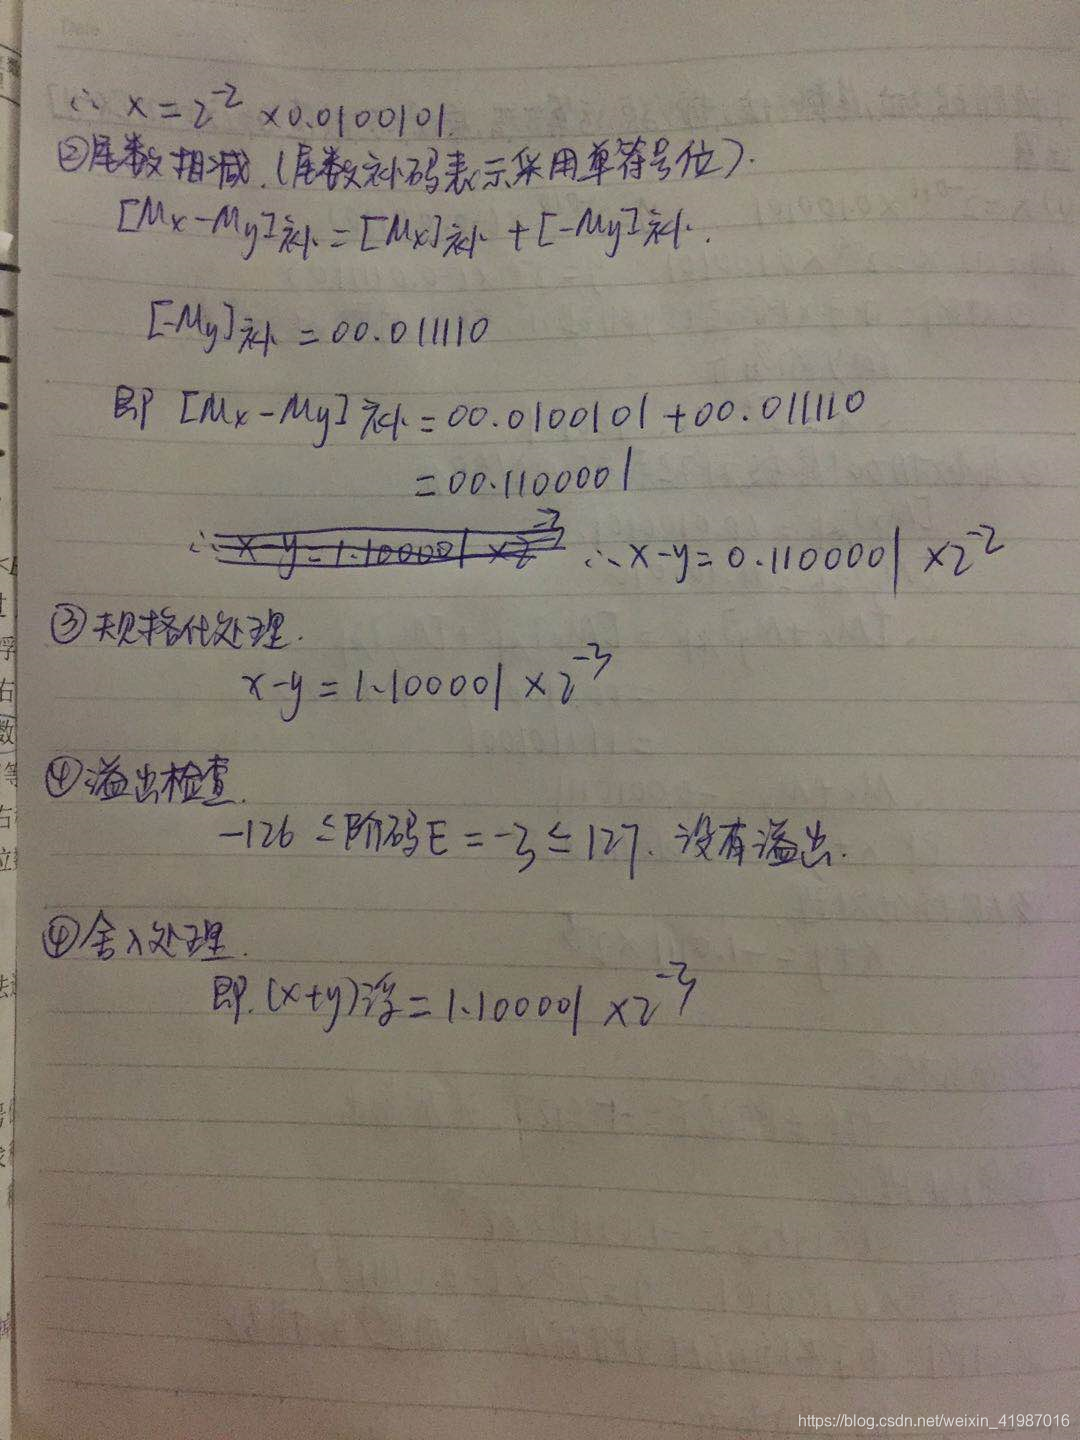 ∴ x = 2^-2 × 0.0100101.
②尾数相减.(尾数补码表示采用单符号位).
[Mx-My]补 = [Mx]补 + [-My]补.
[-My]补 = 00.011110
即 [Mx-My]补 = 00.0100101 + 00.011110
= 00.1100001
∴ x-y = 1.100001 × 2^-3 ∴ x-y = 0.1100001 × 2^-2
③规格化处理.
x-y = 1.100001 × 2^-3
④溢出检查.
-126 ≤ 阶码E = -3 ≤ 127. 没有溢出.
④舍入处理.
即.(x+y)浮 = 1.100001 × 2^-3
https://blog.csdn.net/weixin_41987016